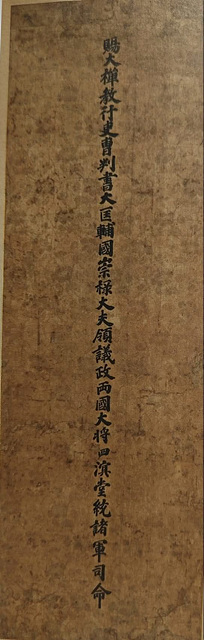 賜大禪教行吏曺判書大匡輔國崇祿大夫領議政兩國大將四溟堂統諸軍司命